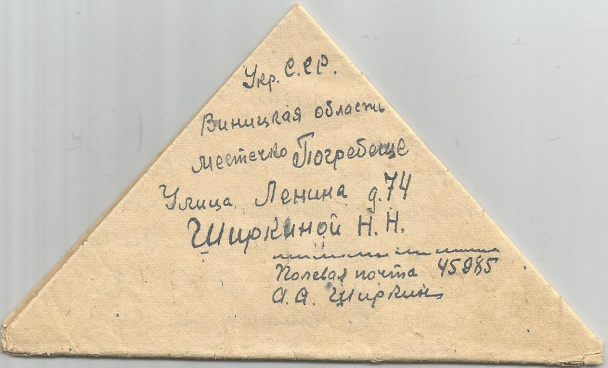 Укр. С.СР.
Виницкая область
местечко Погребеще
Улица Ленина д.74
Ширкиной Н.Н.
Полевая почта 45985
А.А. Ширкин